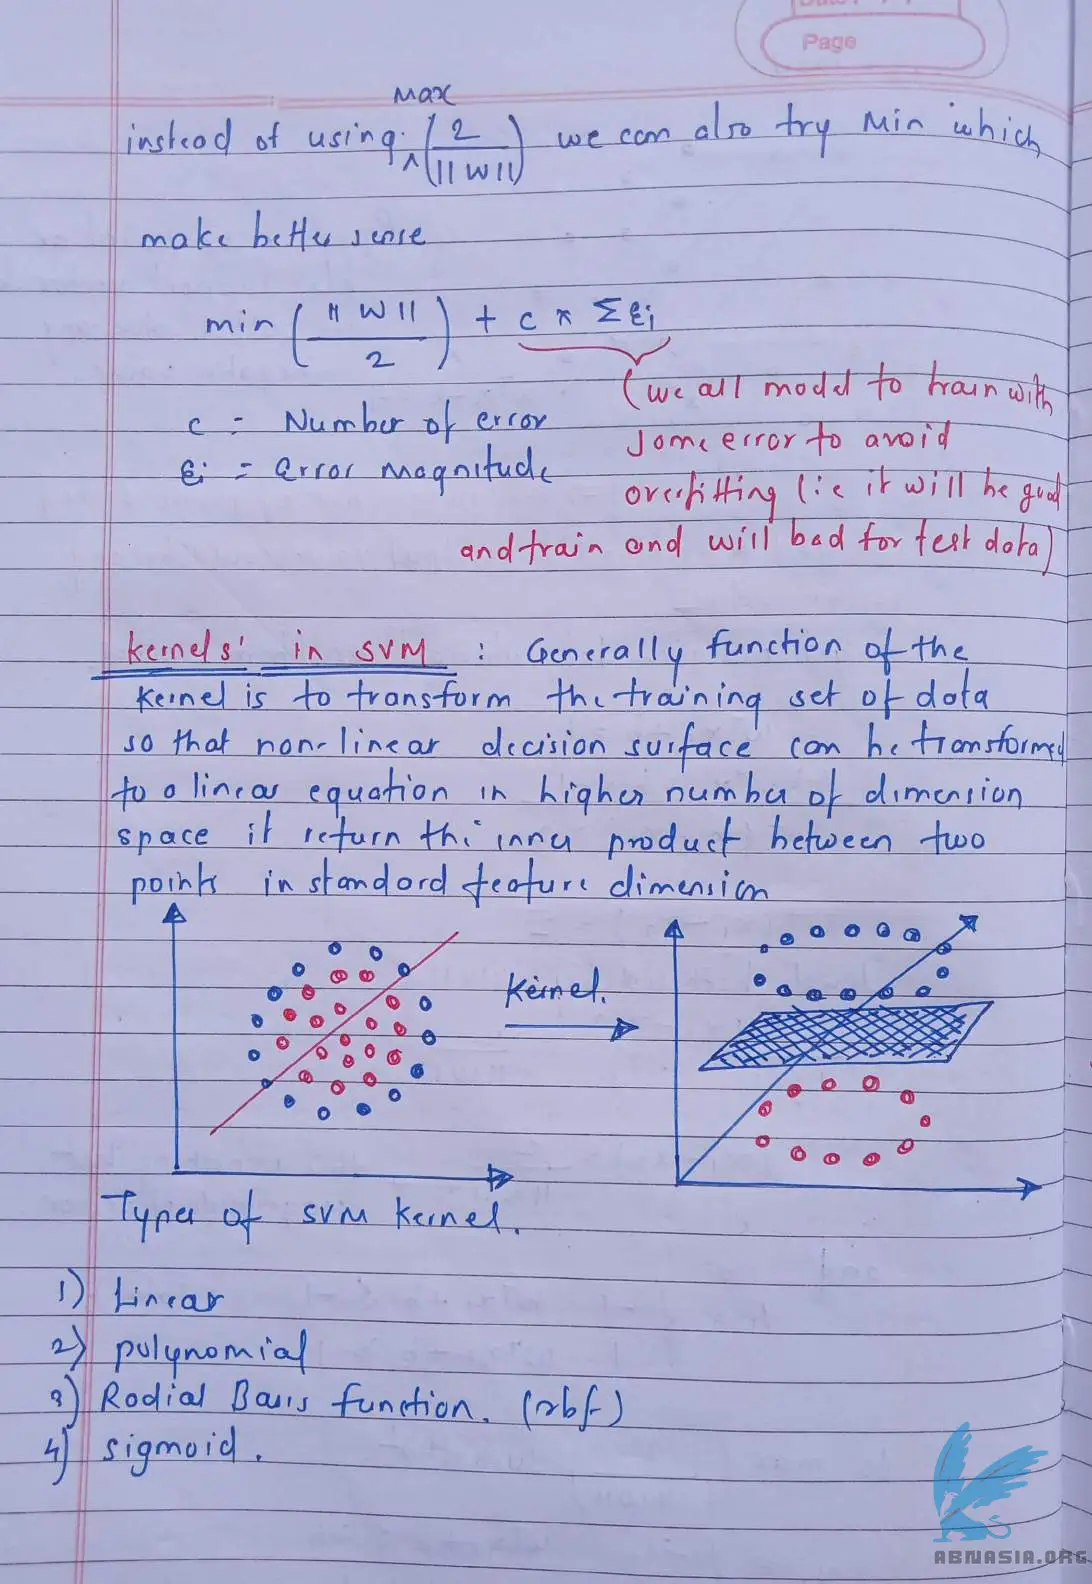 Page
Max
instead of using ^ (2 / ||W||) we can also try Min which
make better sense
min (||W|| / 2) + c * Σ ξi
(we all model to train with
c = Number of error
some error to avoid
ξi = error magnitude
overfitting (ie it will be good
and train and will bad for test data)
kernels' in SVM : Generally function of the
kernel is to transform the training set of data
so that non-linear decision surface can be transformed
to a linear equation in higher number of dimension
space it return the inner product between two
points in standard feature dimension
Kernel.
Types of SVM kernel.
1) Linear
2) polynomial
3) Radial Basis function. (rbf)
4) sigmoid.
ABNASIA.ORG